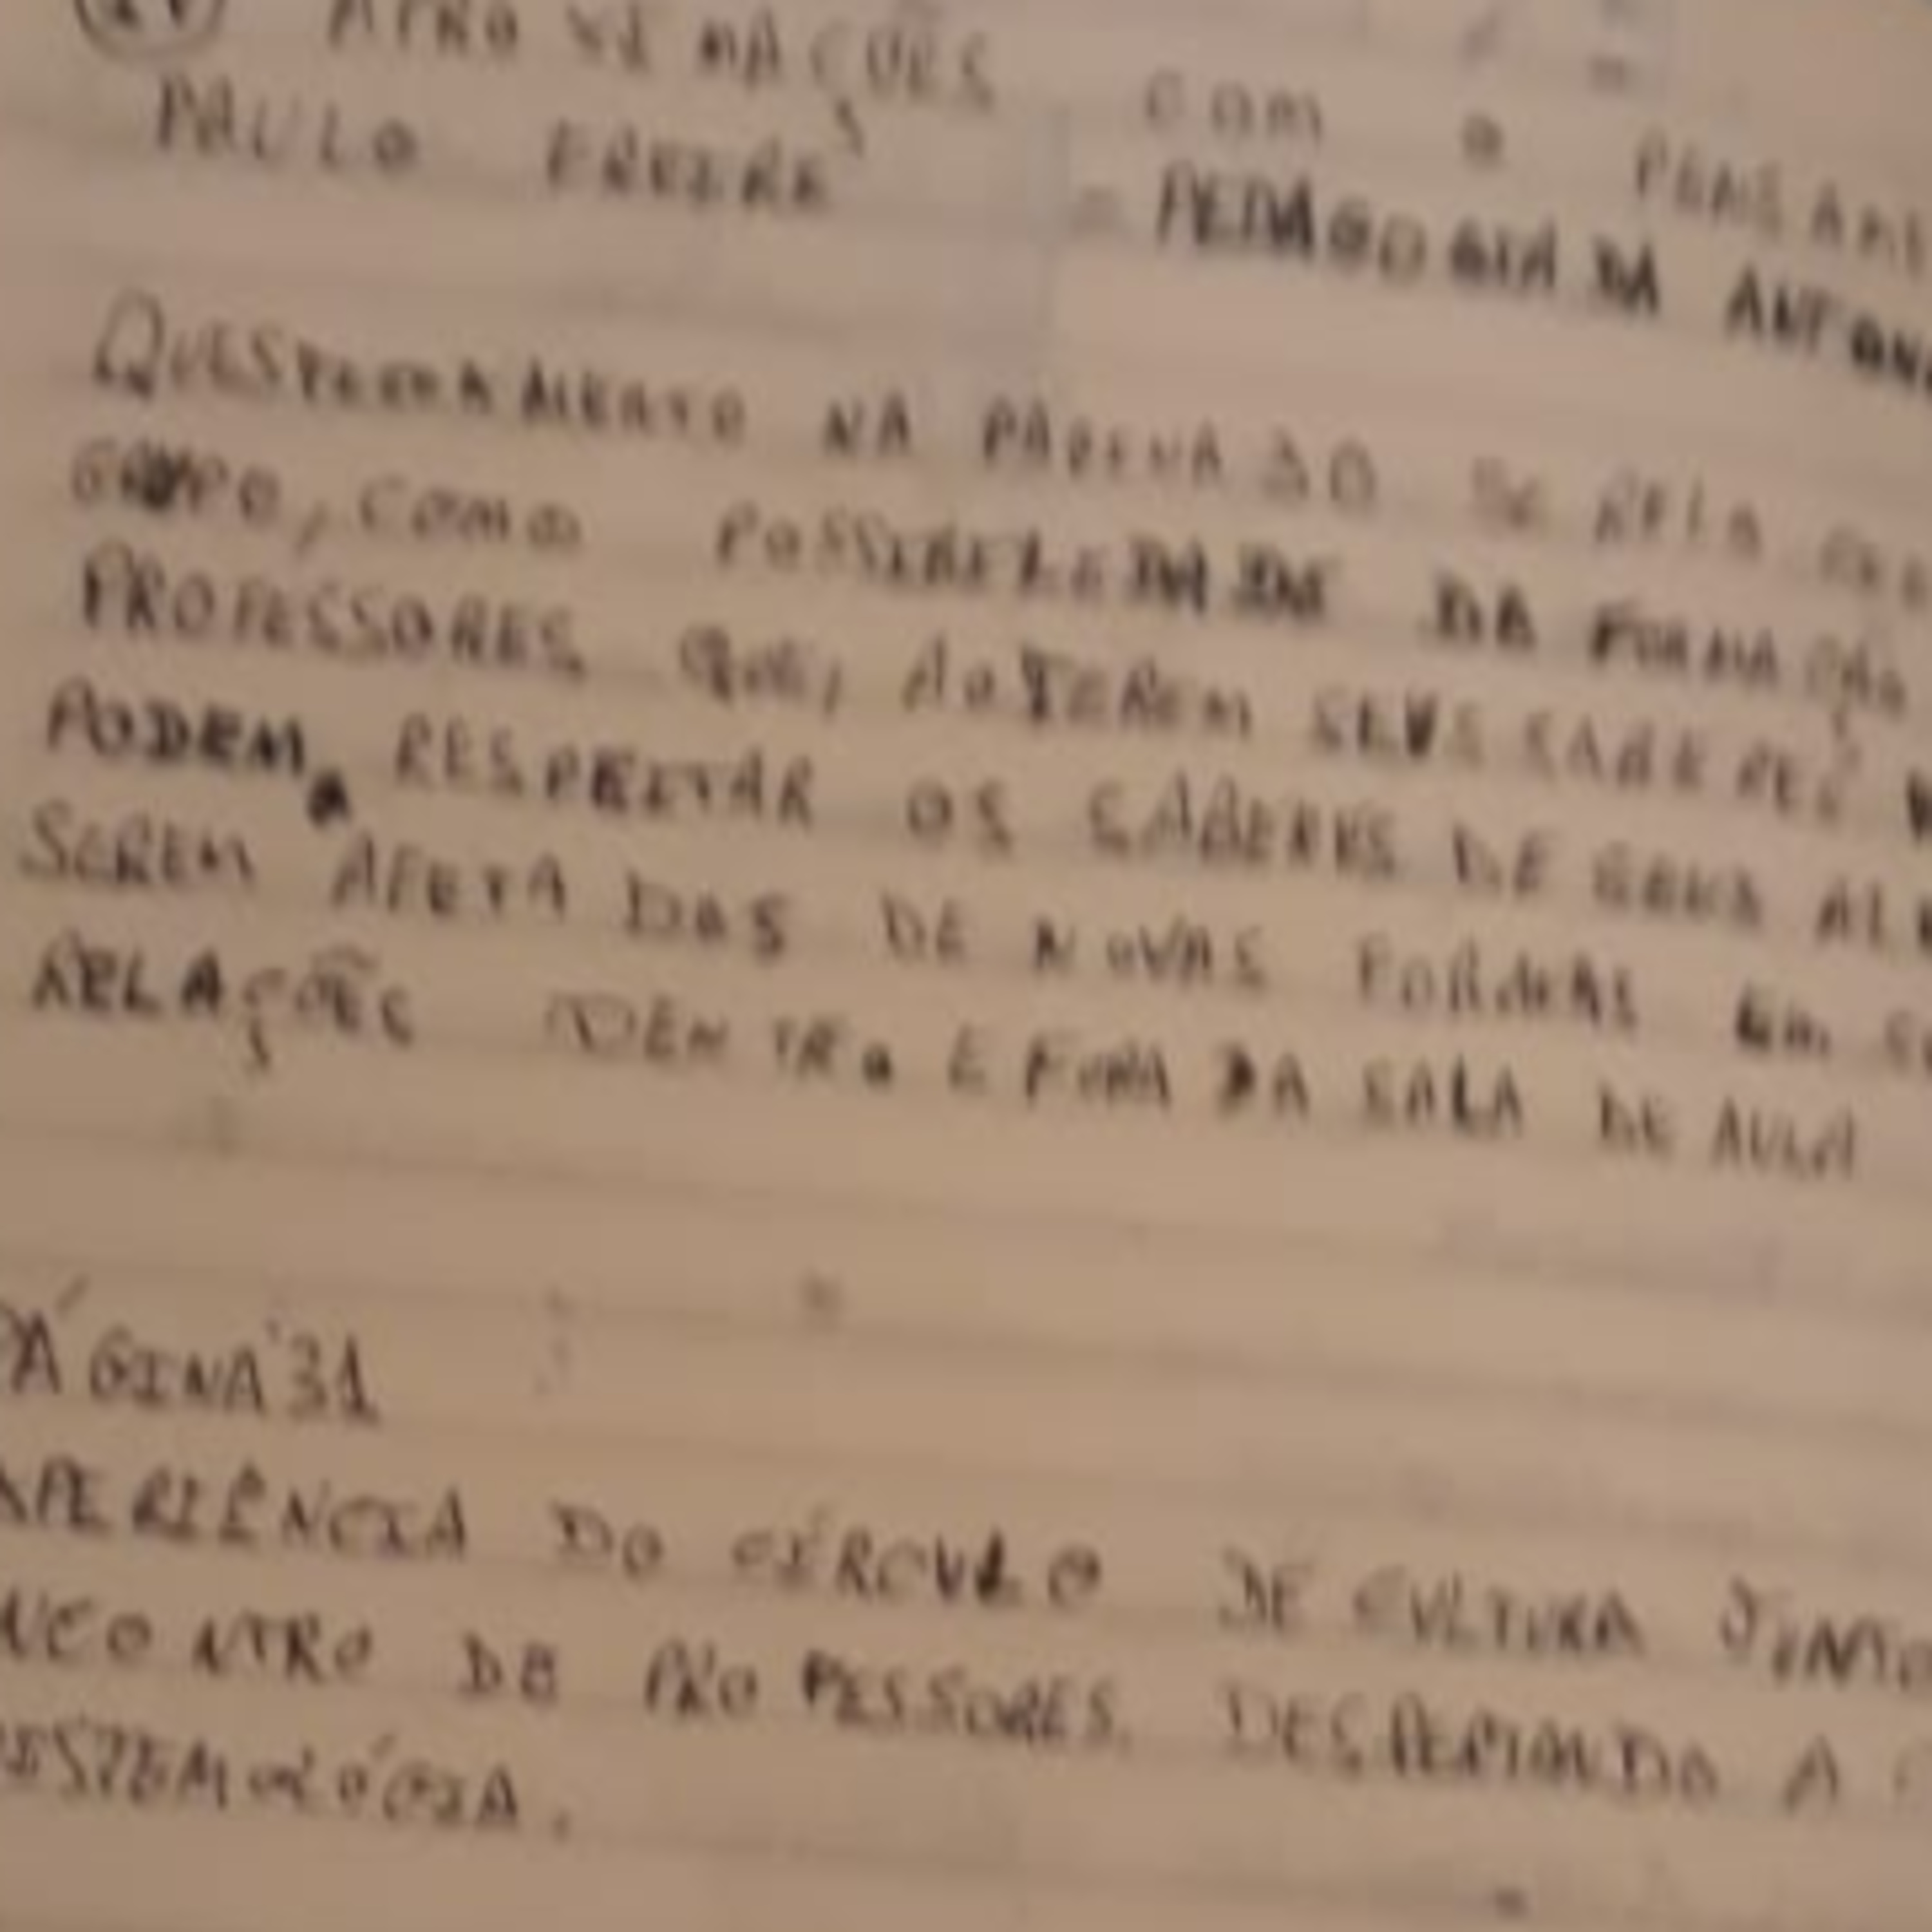 APROXIMAÇÕES COM O
PAULO FREIRE - PEDAGOGIA DA
QUESTIONAMENTO NA
GRUPO, COMO POSSIBILIDADE DA FORMAÇÃO
PROFESSORES QUE, AO TEREM SEUS SABERES
PODEM RESPEITAR OS SABERES DE SEUS
SEREM AFETADAS DE NOVAS FORMAS EM
RELAÇÕES DENTRO E FORA DA SALA DE AULA
PÁGINA 31
XPERIÊNCIA DO CÍRCULO DE CULTURA
NCONTRO DE PROFESSORES, DESPERTANDO A
ISTEMOLÓGICA.